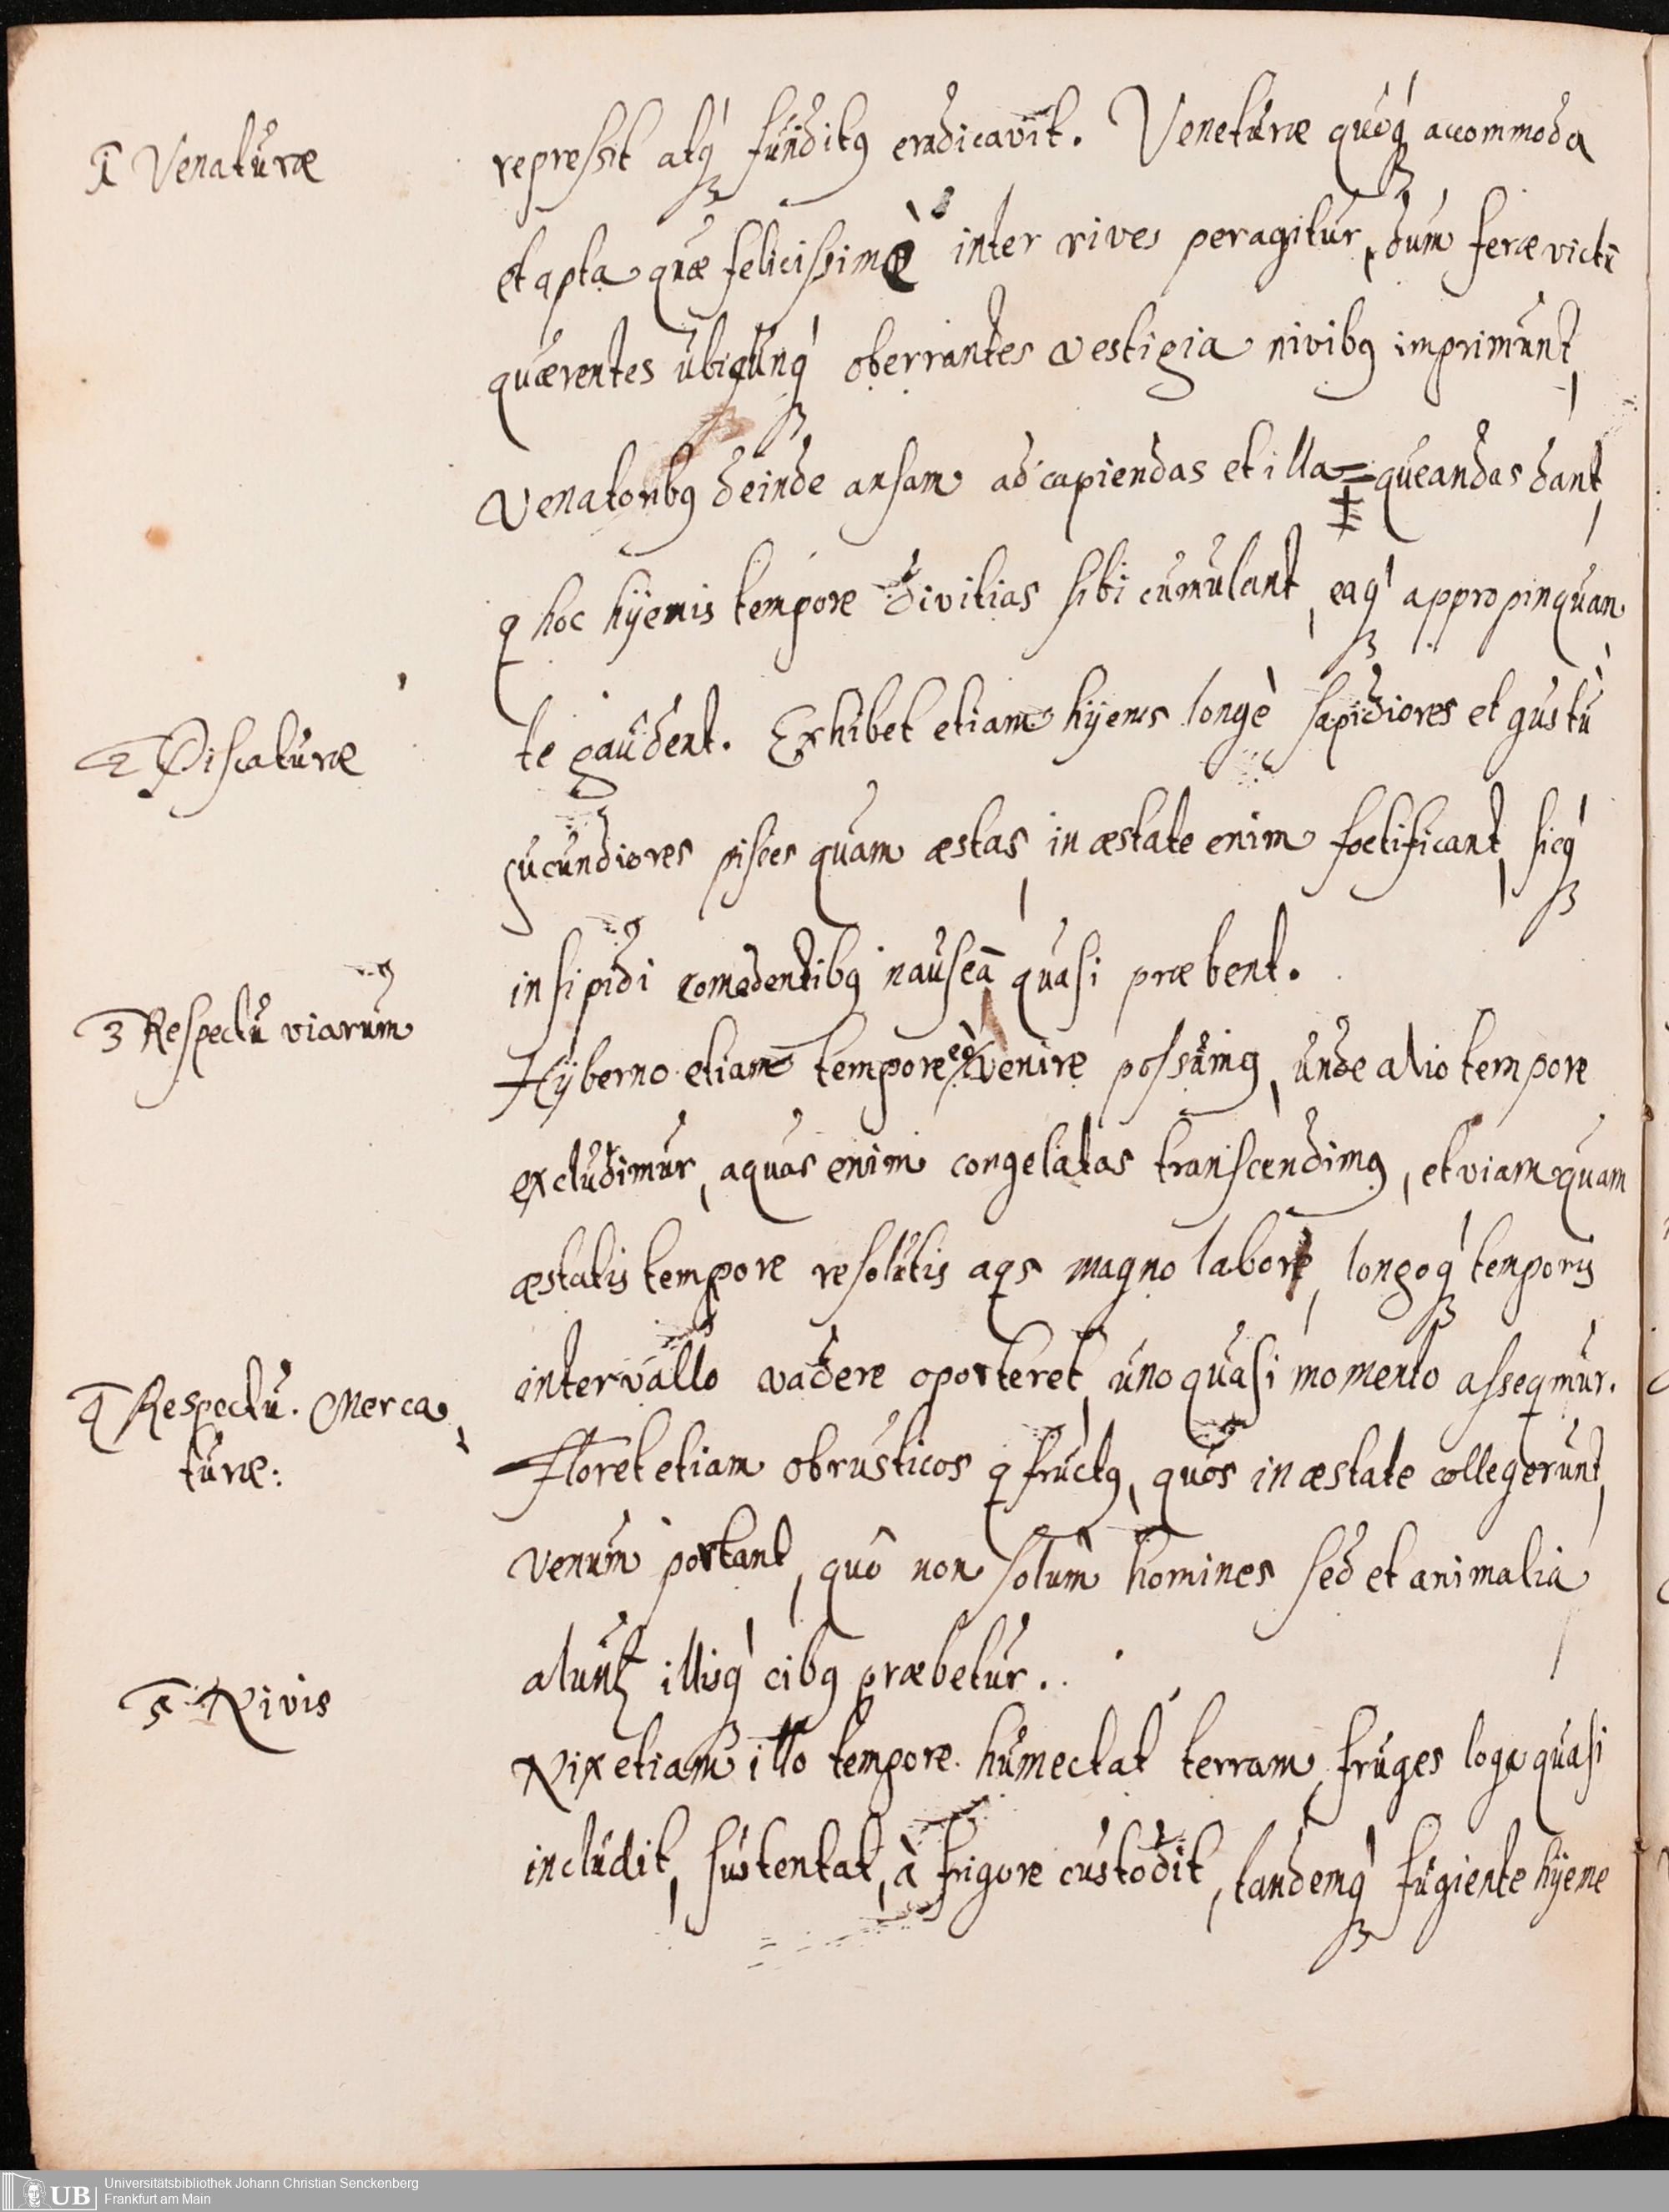 1 Venaturæ
repressit atq́ꝫ funditꝰ eradicavit. Veneturæ quoq́ꝫ accommoda
et apta quæ felicissimè inter nives peragitur, dum feræ victũ
quærentes ubicunq́ꝫ oberrantes vestigia nivibꝰ imprimunt,
venatoribꝰ deinde ansam ad capiendas et illa=queandas dant,
q hoc hÿemis tempore divitias sibi cumulant, eaq́ꝫ appropinquan
2 Piscaturæ
te gaudent. Exhibet etiam hÿems longè sapidiores et gustu
jucundiores pisces quam æstas, in æstate enim foetificant, sicq́ꝫ
insipidi comedentibꝰ nauseã quasi præbent.
3 Respectu viarum
Hÿberno etiam tempore eò venire possumꝰ, unde alio tempore
excludimur, aquas enim congelatas transcendimꝰ, et viam quam
æstatis tempore resolutis aqs magno labore, longoq́ꝫ temporis
intervallo vadere oporteret, uno quasi momento asseqmur.
4 Respectu. Merca
turæ:
Floret etiam ob rusticos q fructꝰ, quos in æstate collegerunt,
venum portant, quô non solùm homines sed et animalia
alunt illisq́ꝫ cibꝰ præbetur.
5 Nivis
Nix etiam illo tempore humectat terram, fruges loga quasi
includit, sustentat, à frigore custodit, tandemq́ꝫ fugiente hÿeme
Universitätsbibliothek Johann Christian Senckenberg
UB Frankfurt am Main